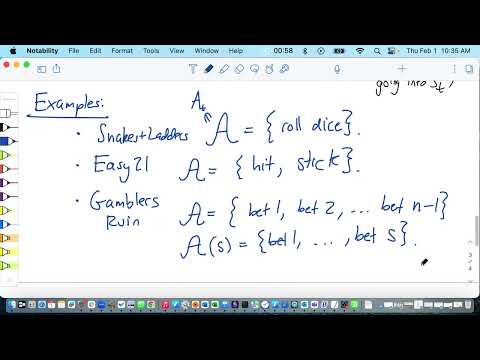 Notability File Edit View Window Help 00:58 Thu Feb 1 10:35 AM
going into St)
Examples:
At
• Snakes+Ladders A = {roll dice}.
• Easy21 A = {hit, stick}.
• Gamblers Ruin A = {bet 1, bet 2, ... bet n-1}
A(s) = {bet 1, ..., bet s}.
3 /
4